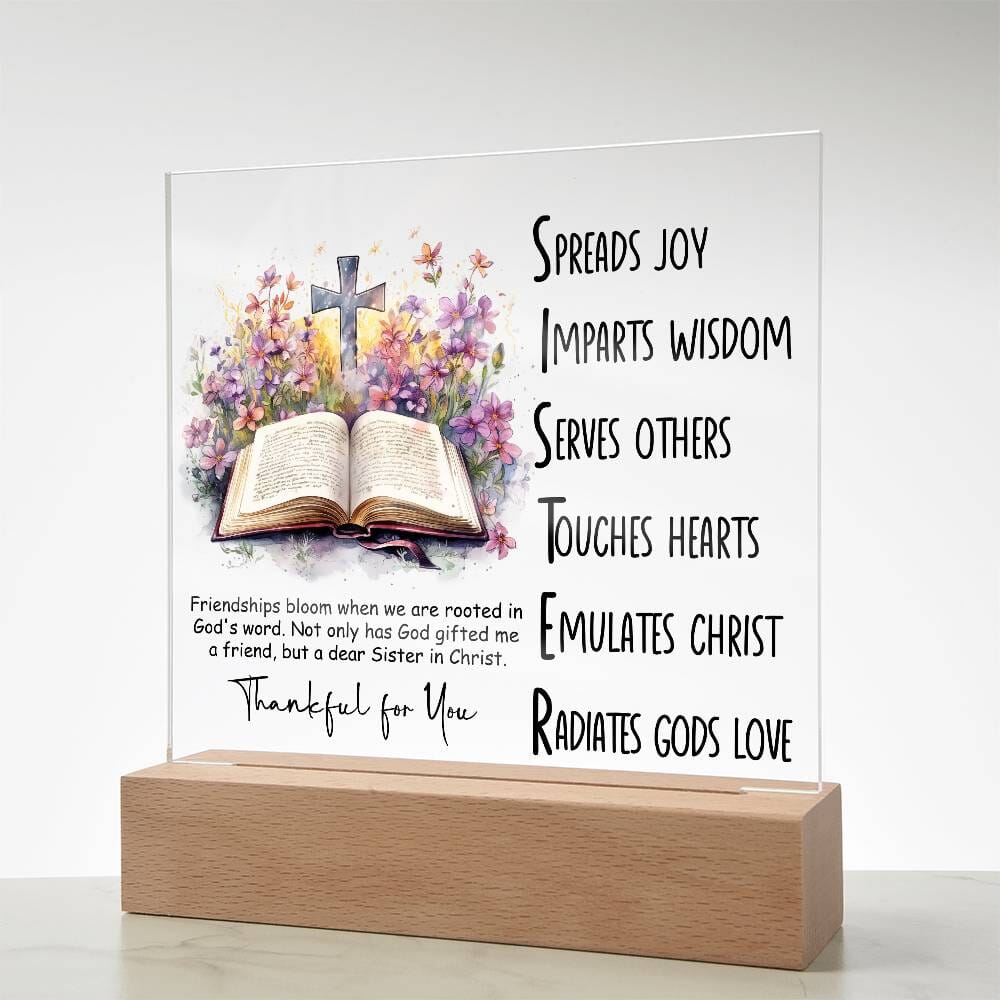 SPREADS JOY
IMPARTS WISDOM
SERVES OTHERS
TOUCHES HEARTS
EMULATES CHRIST
RADIATES GODS LOVE
Friendships bloom when we are rooted in
God's word. Not only has God gifted me
a friend, but a dear Sister in Christ.
Thankful for You